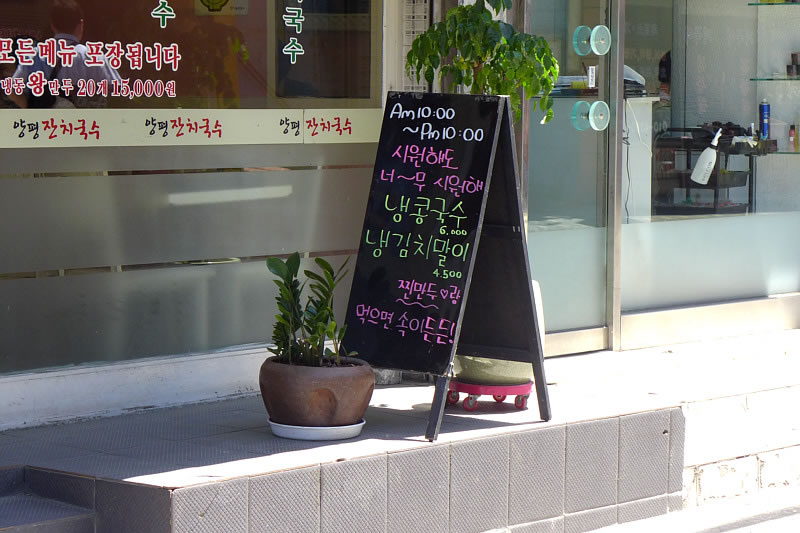 수
국수
모든메뉴 포장됩니다
냉동 왕만두 20개 15,000원
양평 잔치국수 양평 잔치국수 양평 잔치국수
Am 10:00
~Pm 10:00
시원해도
너~무 시원해
냉콩국수
6,000
냉김치말이
4,500
찐만두♡랑
먹으면 속이든든!